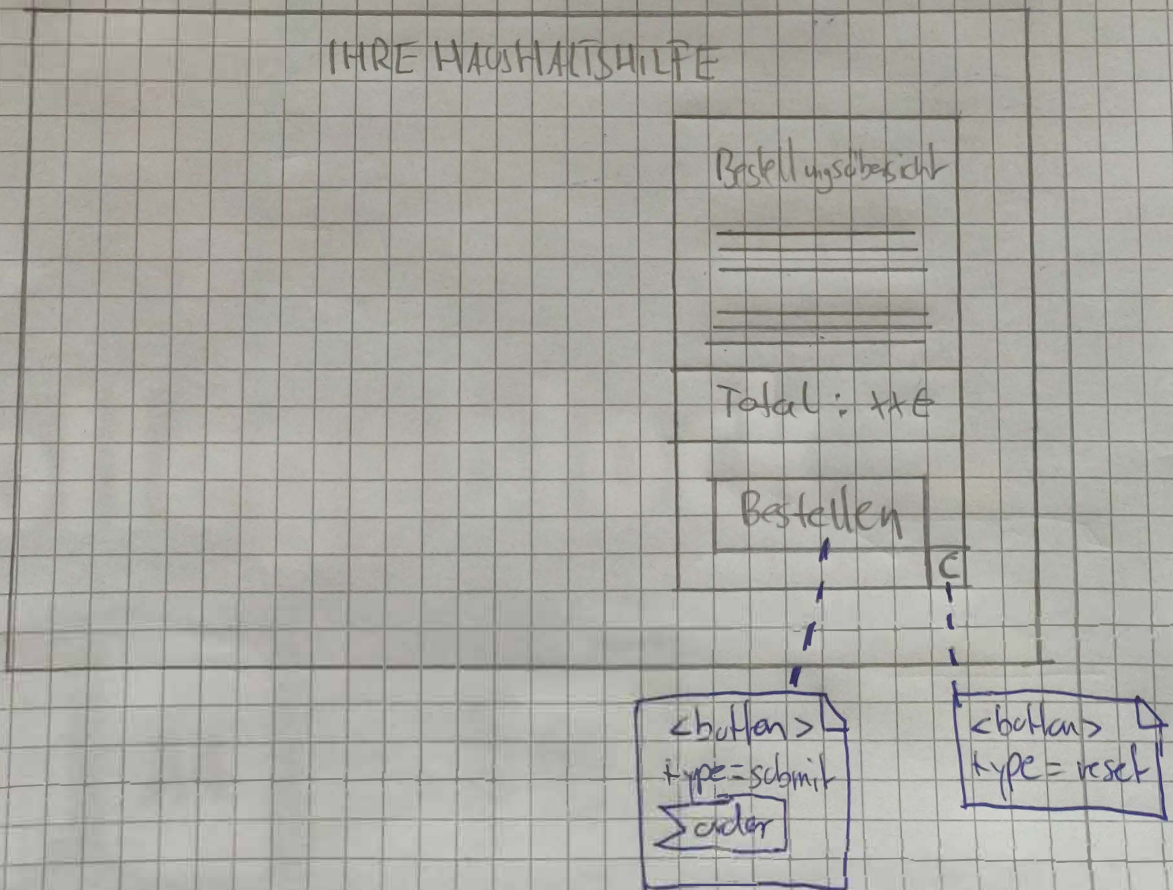 IHRE HAUSHALTSHILFE
Bestellungsübersicht
Total: **€
Bestellen
C
<button>
type=submit
order
<button>
type=reset